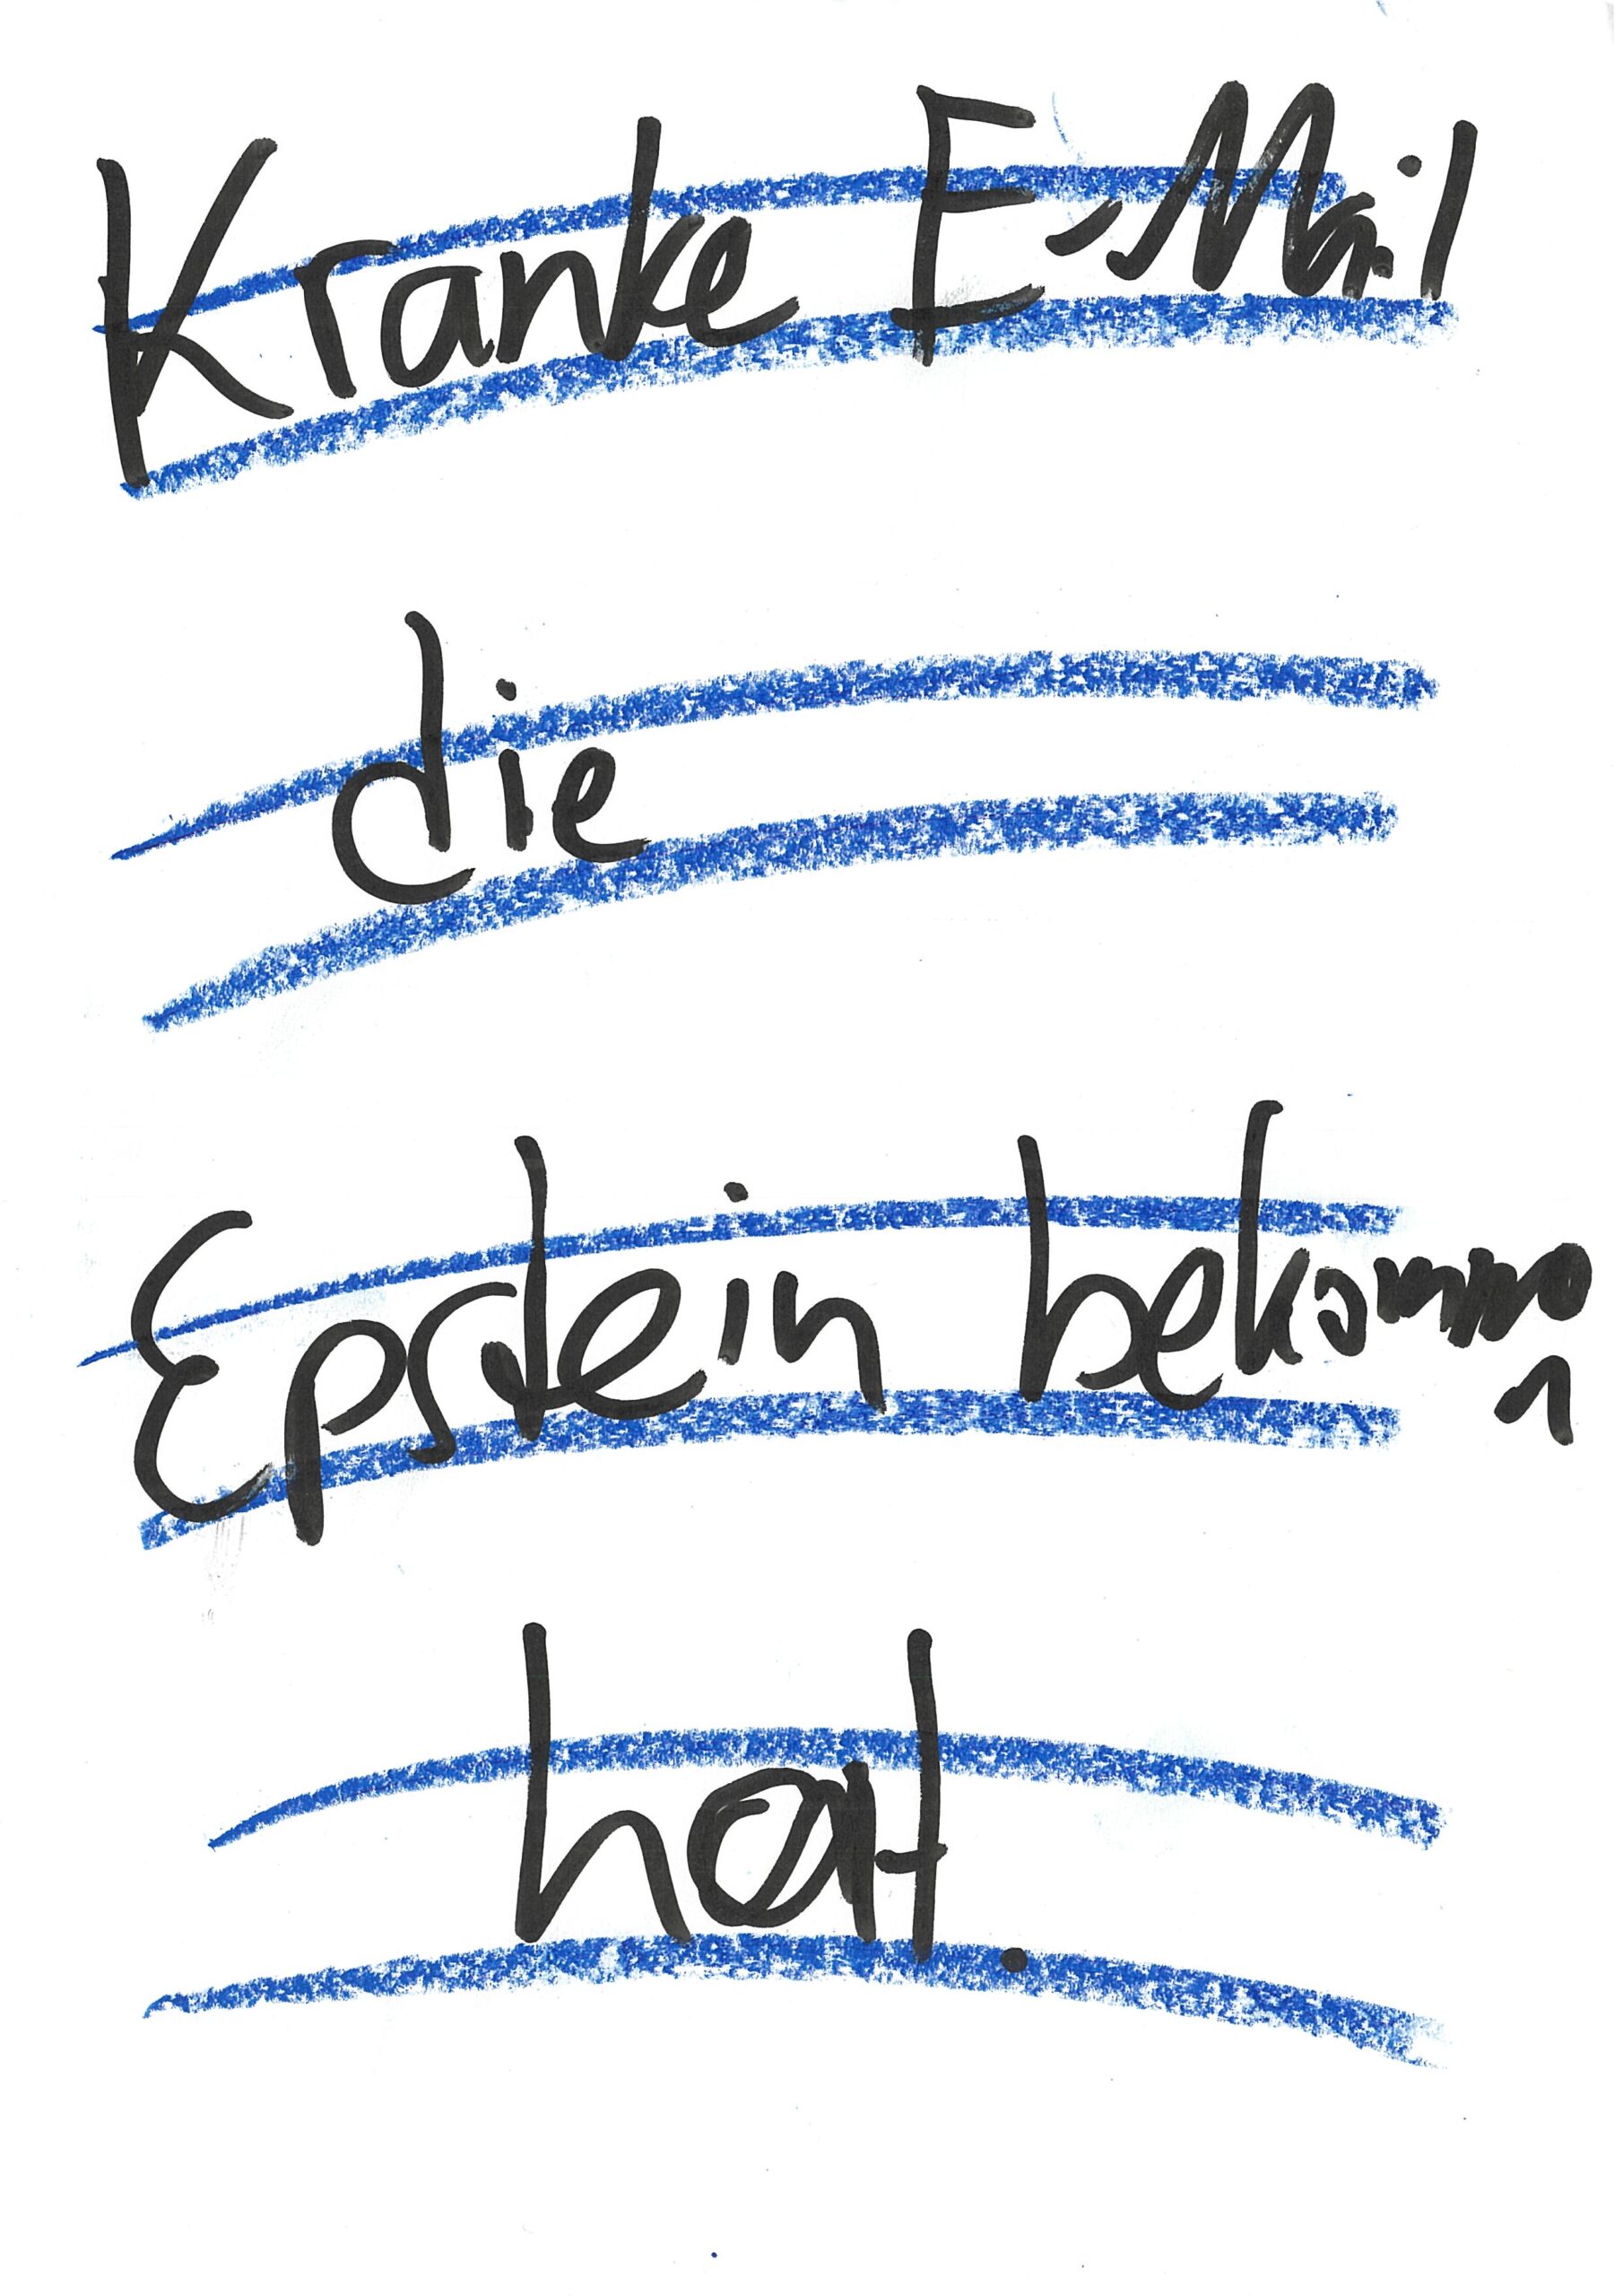 Kranke E-Mail
die
Epstein bekomme
n
hat.